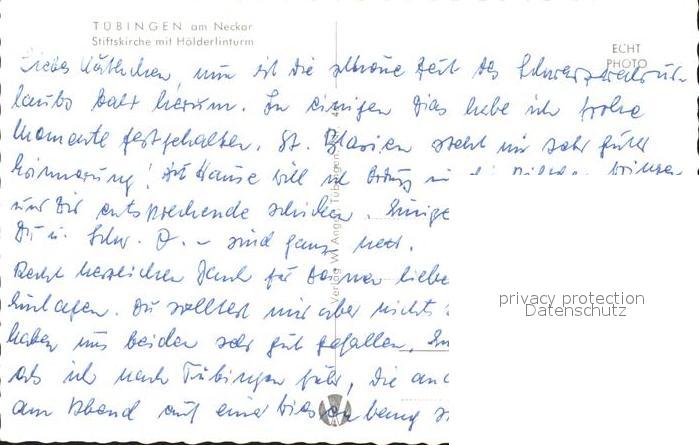 TÜBINGEN am Neckar
Stiftskirche mit Hölderlinturm
ECHT
PHOTO
Liebes Käthchen, nun ist die schöne Zeit des Schwarzwaldur-
laubs bald herum. In einigen Dias habe ich frohe
Momente festgehalten. St. Blasien steht mir sehr guter
Erinnerung! Zu Hause will ich in die bringen
und Dir entsprechende schicken. Einige
Du u. Schw. – sind ganz nett.
Recht herzlichen Dank für Deinen liebe
Einlagen. Du solltest mir aber nichts
haben uns beiden sehr gut gefallen.
als ich nach Tübingen fuhr, die an
am Abend auf einer
Verlag W. Angst, Tübingen
privacy protection
Datenschutz